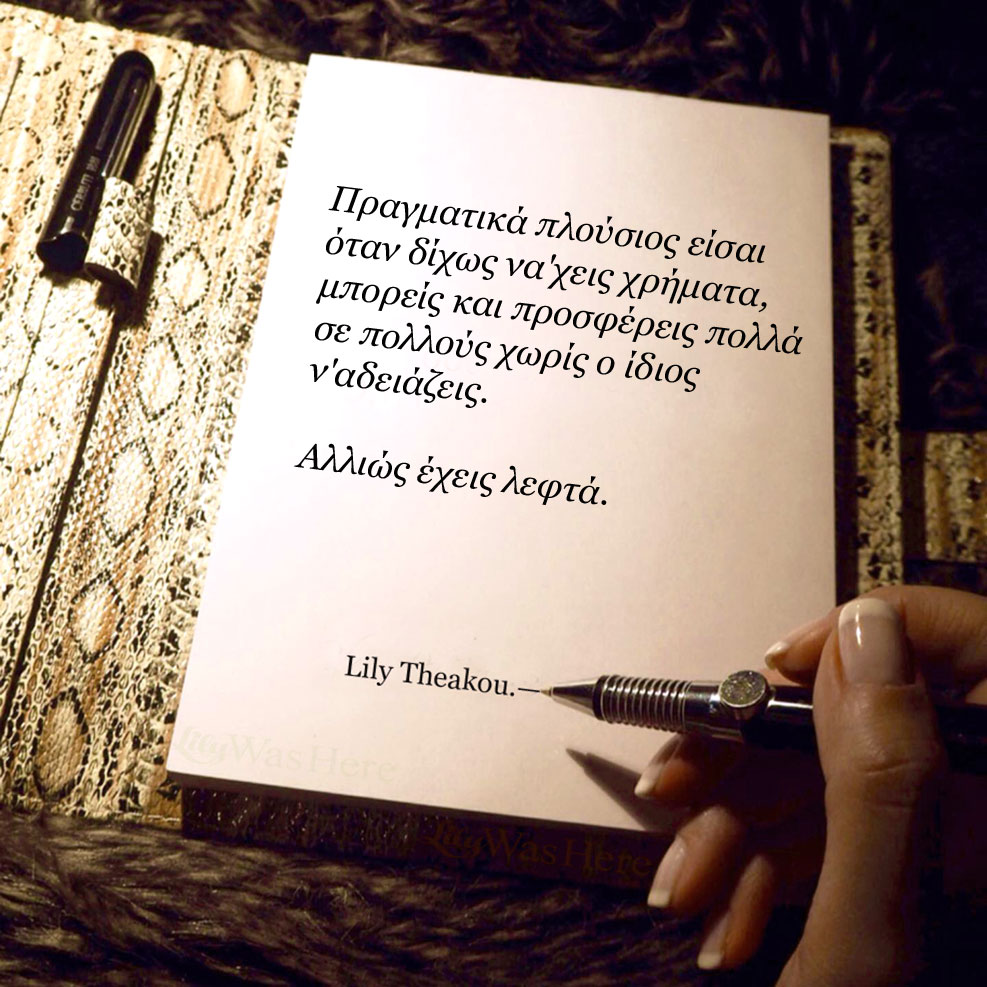 CERRUTI 1881
Πραγματικά πλούσιος είσαι
όταν δίχως να'χεις χρήματα,
μπορείς και προσφέρεις πολλά
σε πολλούς χωρίς ο ίδιος
ν'αδειάζεις.
Αλλιώς έχεις λεφτά.
Lily Theakou.—
LilyWasHere
LilyWasHere